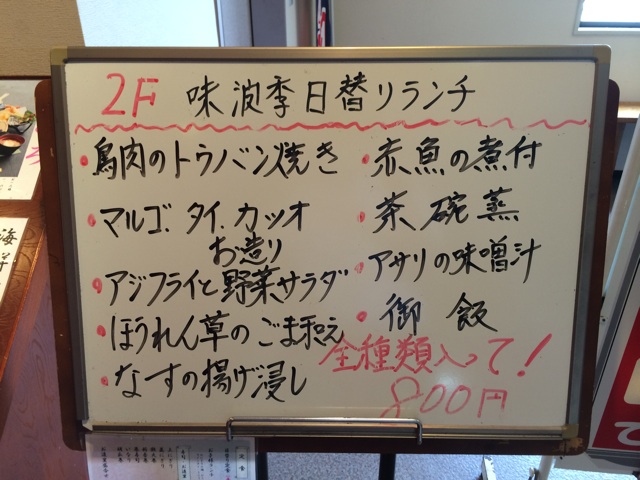 2F 味波季日替りランチ
・鳥肉のトウバン焼き
・マルゴ.タイ.カツオ
お造り
・アジフライと野菜サラダ
・ほうれん草のごま和え
・なすの揚げ浸し
・赤魚の煮付
・茶碗蒸
・アサリの味噌汁
・御飯
全種類入って!
800円